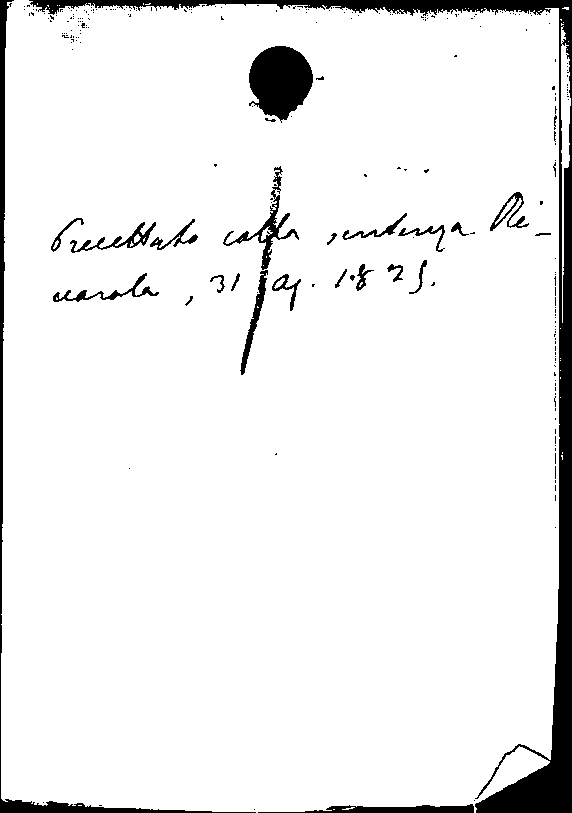 Precettato colla sentenza Ri-
varola, 31 ag. 1825.